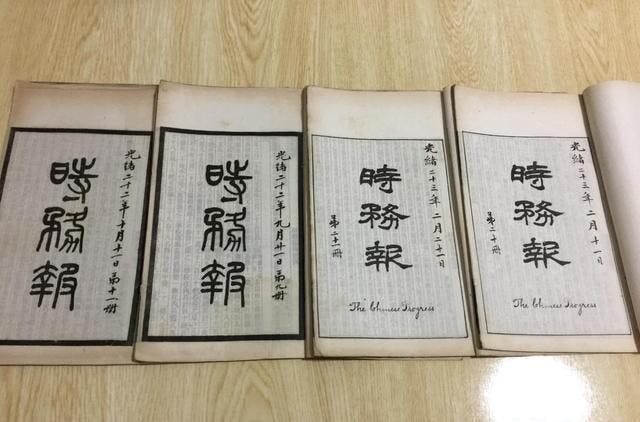 光緒二十二年十月十一日 第十一册
時務報
光緒二十二年九月廿一日第九册
時務報
光緒二十三年二月廿一日
時務報
第二十一册
The Chinese Progress
光緒二十三年二月十一日
時務報
第二十册
The Chinese Progress